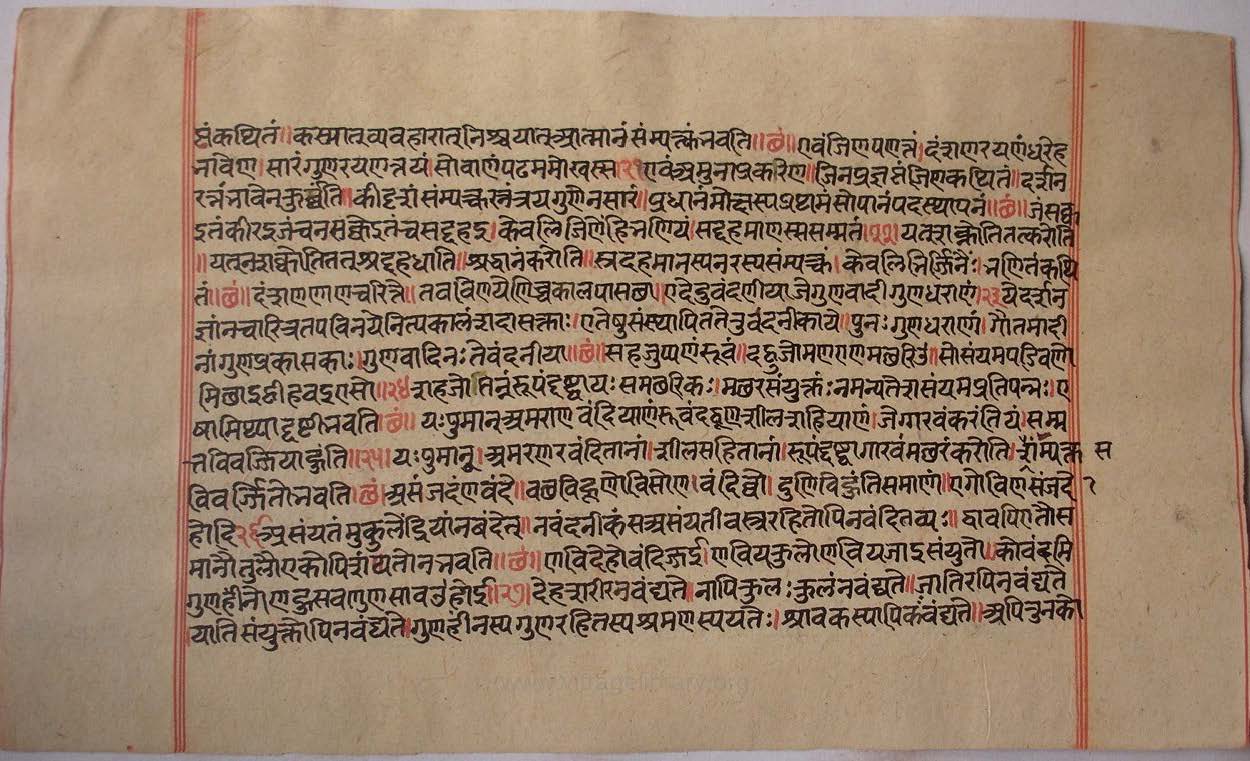 ष्टं कथितं॥ कस्मात् व्यवहारात् निश्चयात् आत्मानं संम्पत्क्तं भवति॥छ॥ एवं जिणपणत्तं। दंशणरयणं धरेह
भाविण। सारं गुणरयणत्तयं। सोवाणं पढममोखस्स २१ एवं अमुना प्रकारेण। जिनप्रज्ञप्तं जिणकथितं॥ दर्शन
रत्नं भावेन कुर्व्वति॥ कीदृशं संम्पत्क्त रत्नंत्रय गुणेन सारं॥ प्रधानं मोक्षस्य प्रष्टामं सोपानं पदस्थापनं॥छ॥ जं सक्क
इ तं कीरइ जं च न सक्केइ तं च सद्दहइ। केवलिजिणेहि भणियं। सद्दहमाणस्स सम्मतं॥२२॥ यत् शक्नोति तत्करोति
॥ यत् न शक्नोति तत् श्रद्दहधाति॥ श्रद्धानं करोति॥ स्रदहमानस्य नरस्य संम्यक्तं। केवलिभिर्ज्जिनैः। भणितं कथि
तं॥छ॥ दंशणणाणचरित्ते॥ तवविणये णिच्चकालपासछ। एदे दु वंदणीया जे गुणवादी गुणधराणं। २३ ये दर्शन
ज्ञानचारित्र तपविनये नित्यकालं शदासक्ताः। एतेषु संस्थापितं ते तु वंदनीकाये॥ पुनः गुणधराणं। गौतमादी
नां गुणप्रकासकाः। गुणवादिनः ते वंदनीया॥छ॥ सहजुप्पणं रूवं॥ दट्ठु जो मणण मछरिउं॥ सो संयमपडिवणो
मिछाइट्ठी हवइ एसो॥२४ शहजो त्पिन्नं रूपं दृष्ट्वा यः समछरिकः। मछरसंयुक्तं नमन्यते श संयमप्रतिपन्नः। ए
षा मिथ्यादृष्टी भवति॥छ॥ यः पुमान् अमराण वंदियाणं रूवं दट्ठूण शीलशहियाणं। जे गारवं करंति यं। सम्म
त्त विवज्जिया हुंति॥२५॥ यः पुमान् अमरणर वंदितानां। शीलसहितानां। रूपं दृष्ट्वा गारवं मछरं करोति। शंम्पत्क्त स
विवर्ज्जितो भवति॥छ॥ असंजदं ण वंदे॥ वछविहूणो वि सो ण वंदिव्वो। दुणि वि हुंति समाणं॥ एगो वि ण संजदो
होदि २६॥ असंयतं मुकुलेंद्रियां न वंदेत्॥ न वंदनीकं स च असंयती वस्त्ररहितोपि न वंदितव्यः॥ द्वावपि तौ स
मानौ तुल्यौ एकोपि शंयतो न भवति॥छ॥ णवि देहो वंदिज्जई। णवि य कुलो णवि य जाइसंयुतो॥ को वंदमि
गुणहीनो ण हु सवणुण सावउ होई॥२७॥ देह शरीर न वंद्यते॥ नापि कुलः कुलं न वंद्यते॥ जातिरपि न वंद्यते
याति संयुक्तोपि न वंद्यते॥ गुणहीनस्य गुणरहितस्य श्रमणस्य यतेः। श्रावकस्यापि कं वंद्यते॥ अपि तु न को